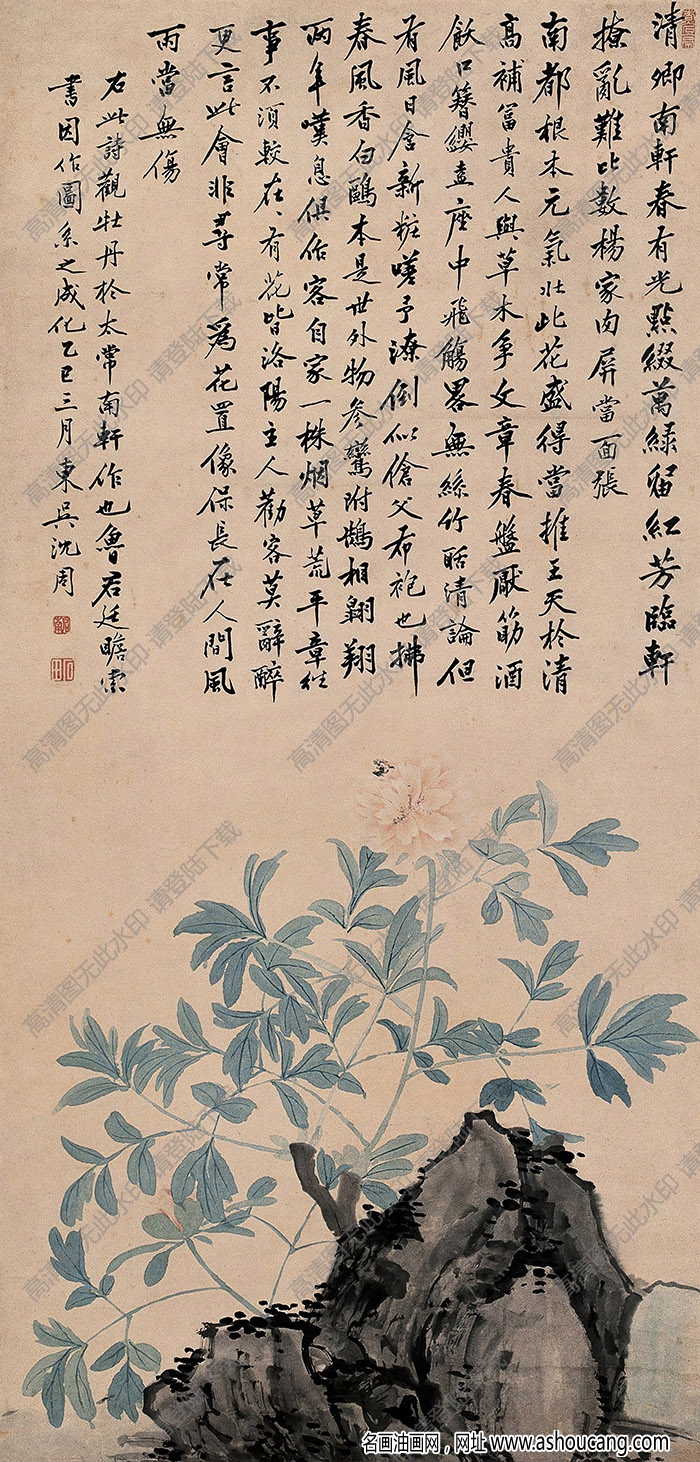 清卿南軒春有光點綴萬綠留紅芳臨軒
撩亂難比數楊家肉屏當面張
南都根本元氣壯此花盛得當推王天於清
高補富貴人與草木爭文章春盤厭筯酒
飫口簪纓盍座中飛觴畧無絲竹聒清論但
有風日含新粧嗟予潦倒似傖父布袍也拂
春風香白鷗本是世外物參鸞附鵠相翱翔
兩年嘆息俱作客自家一株烟草荒平章往
事不須較在在有花皆洛陽主人勸客莫辭醉
更言此會非尋常爲花置像保長在人間風
雨當無傷
右此詩觀牡丹於太常南軒作也魯君廷瞻索
書因作圖系之成化乙巳三月東吳沈周
高清图无此水印·请登陆下载
名画油画网，网址 www.ashoucang.com